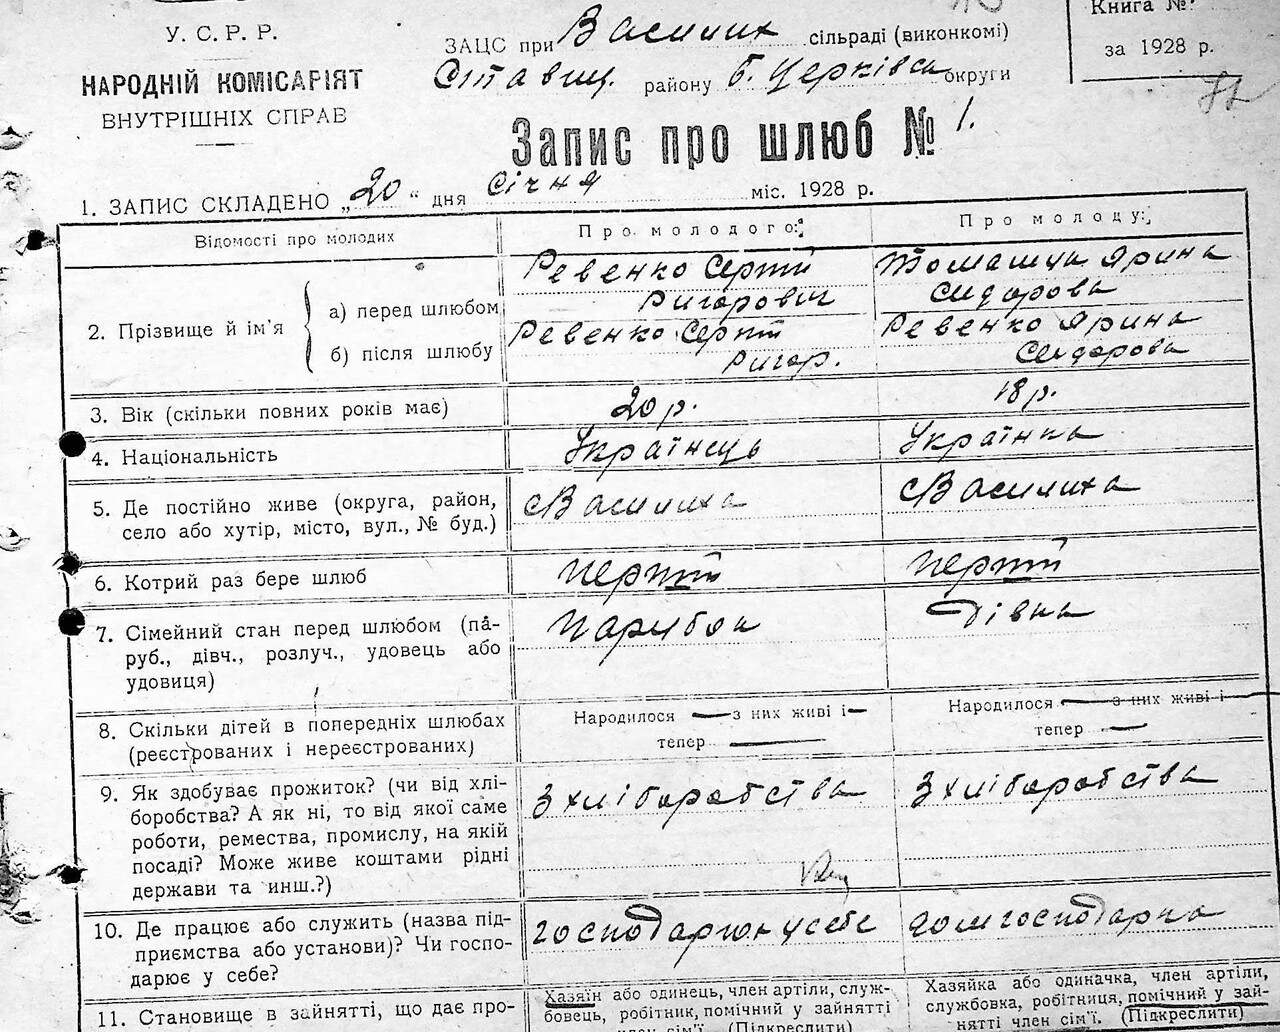 У. С. Р. Р.
НАРОДНІЙ КОМІСАРІЯТ
ВНУТРІШНІХ СПРАВ
ЗАЦС при Василих сільраді (виконкомі)
Ставищ. району Б. Церківськ округи
Книга №
за 1928 р.
Запис про шлюб № 1.
1. ЗАПИС СКЛАДЕНО „20" дня Січня міс. 1928 р.
Відомості про молодих
Про молодого:
Про молоду:
2. Прізвище й ім'я
а) перед шлюбом
Ревенко Сергій
Ригорович
Томащук Ярина
Сидорова
б) після шлюбу
Ревенко Сергій
Ригор.
Ревенко Ярина
Сидорова
3. Вік (скільки повних років має)
20 р.
18 р.
4. Національність
Українець
Українка
5. Де постійно живе (округа, район,
село або хутір, місто, вул., № буд.)
с Василиха
с Василиха
6. Котрий раз бере шлюб
перший
перший
7. Сімейний стан перед шлюбом (па-
руб., дівч., розлуч., удовець або
удовиця)
Парубок
Дівка
8. Скільки дітей в попередніх шлюбах
(реєстрованих і нереєстрованих)
Народилося — з них живі і —
тепер —
Народилося — з них живі і —
тепер —
9. Як здобуває прожиток? (чи від хлі-
боробства? А як ні, то від якої саме
роботи, ремества, промислу, на якій
посаді? Може живе коштами рідні
держави та инш.?)
З хліборобства
З хліборобства
10. Де працює або служить (назва під-
приємства або установи)? Чи госпо-
дарює у себе?
господарюн у себе
домгосподарка
11. Становище в зайнятті, що дає про-
Хазяїн або одинець, член артіли, служ-
бовець, робітник, помічний у зайнятті
член сім'ї. (Підкреслити)
Хазяйка або одиначка, член артіли,
службовка, робітниця, помічний у зай-
нятті член сім'ї. (Підкреслити)